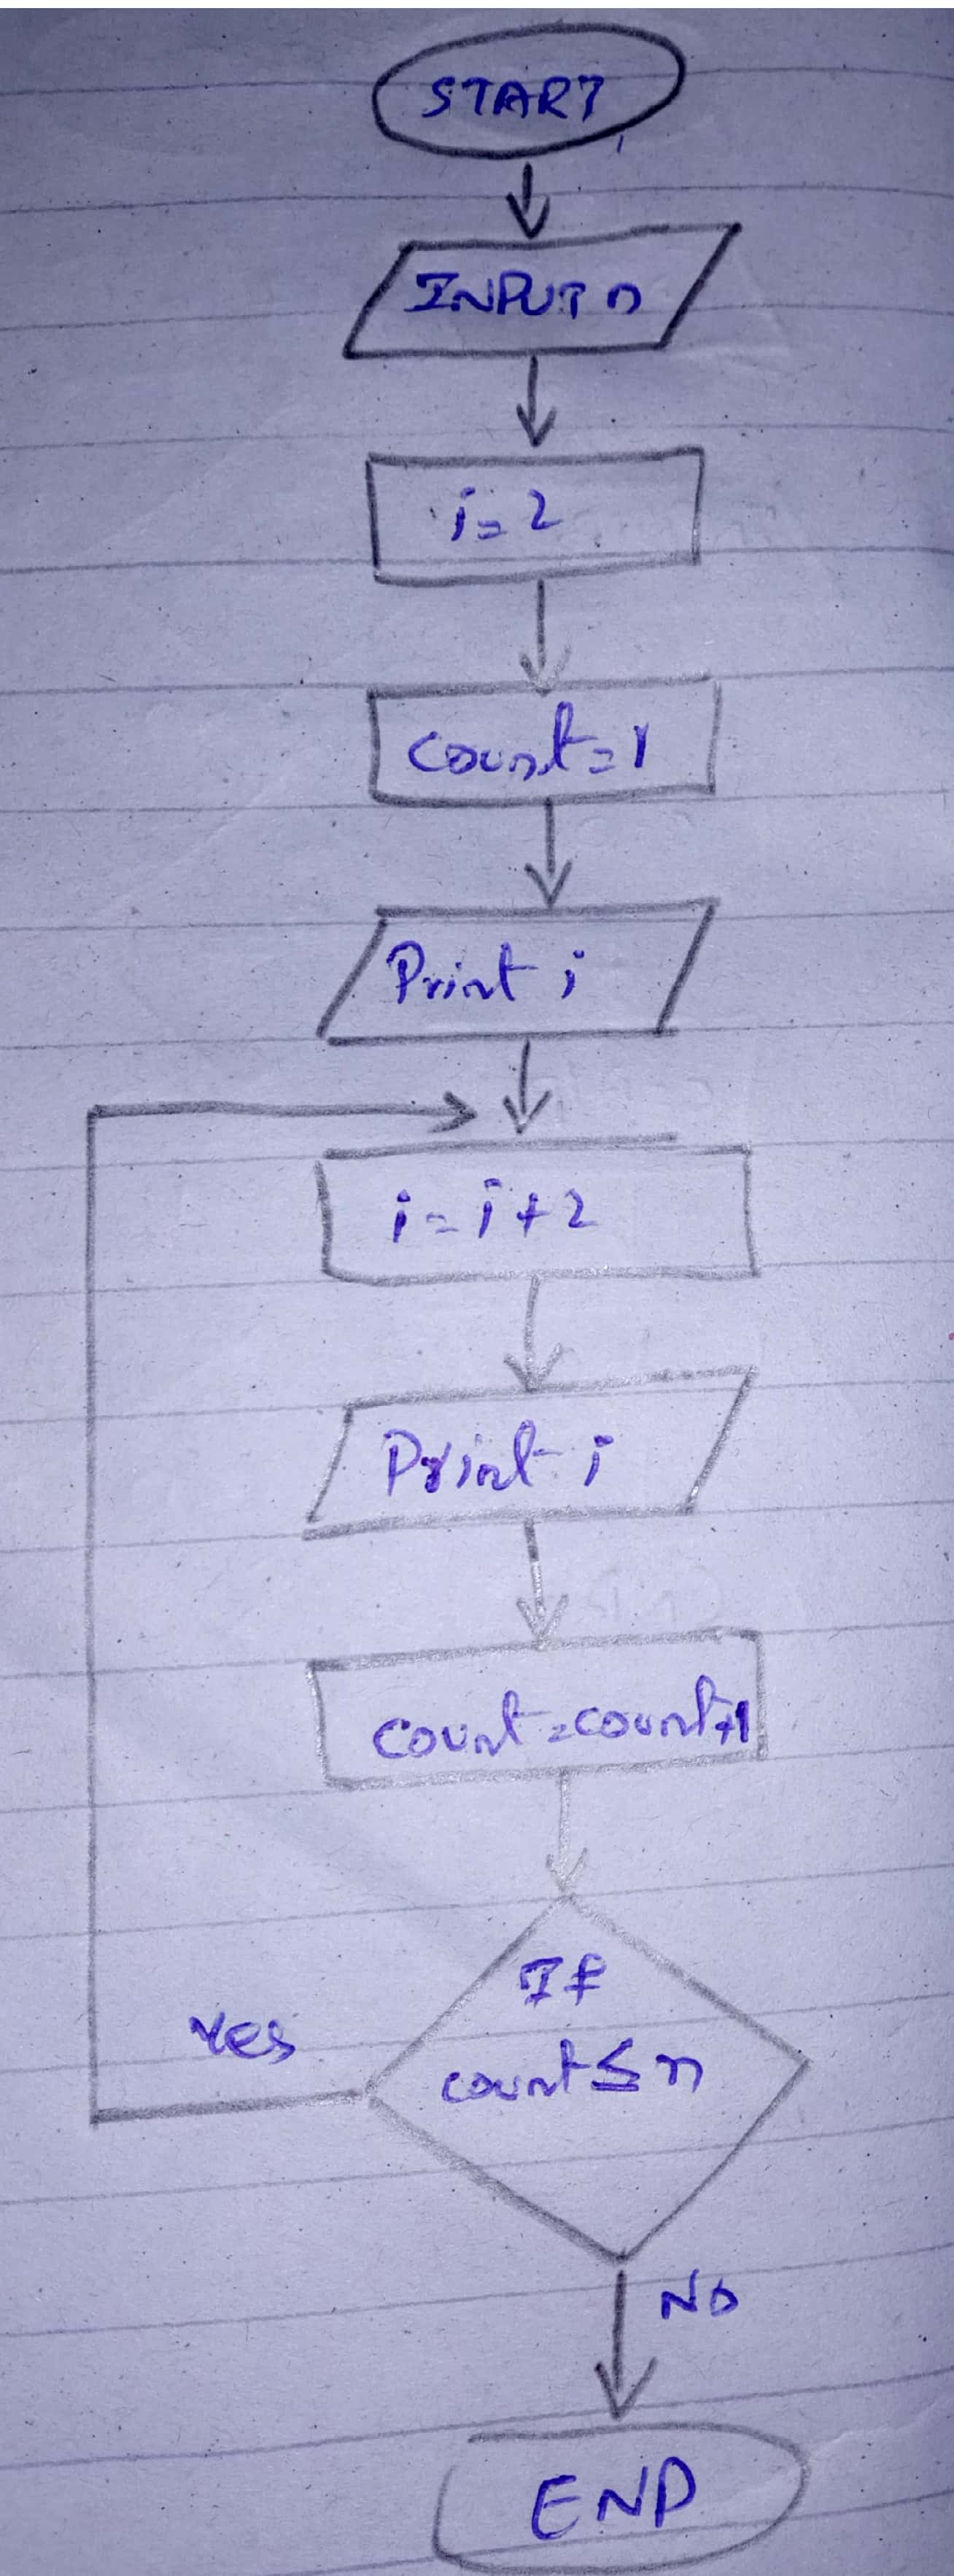 START
INPUT n
i=2
count=1
Print i
i=i+2
Print i
count=count+1
If
count≤n
Yes
NO
END